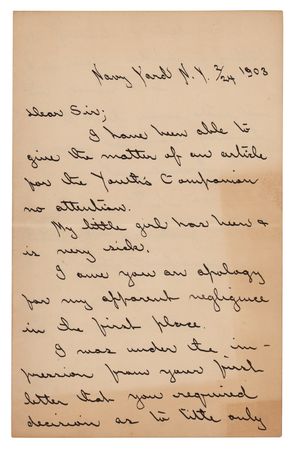 Navy Yard N.Y. 2/24 1903
Dear Sir;
I have been able to
give the matter of an article
for the Youth's Companion
no attention.
My little girl has been &
is very sick.
I owe you an apology
for my apparent negligence
in the first place.
I was under the im-
pression from your first
letter that you required
decision as to title only